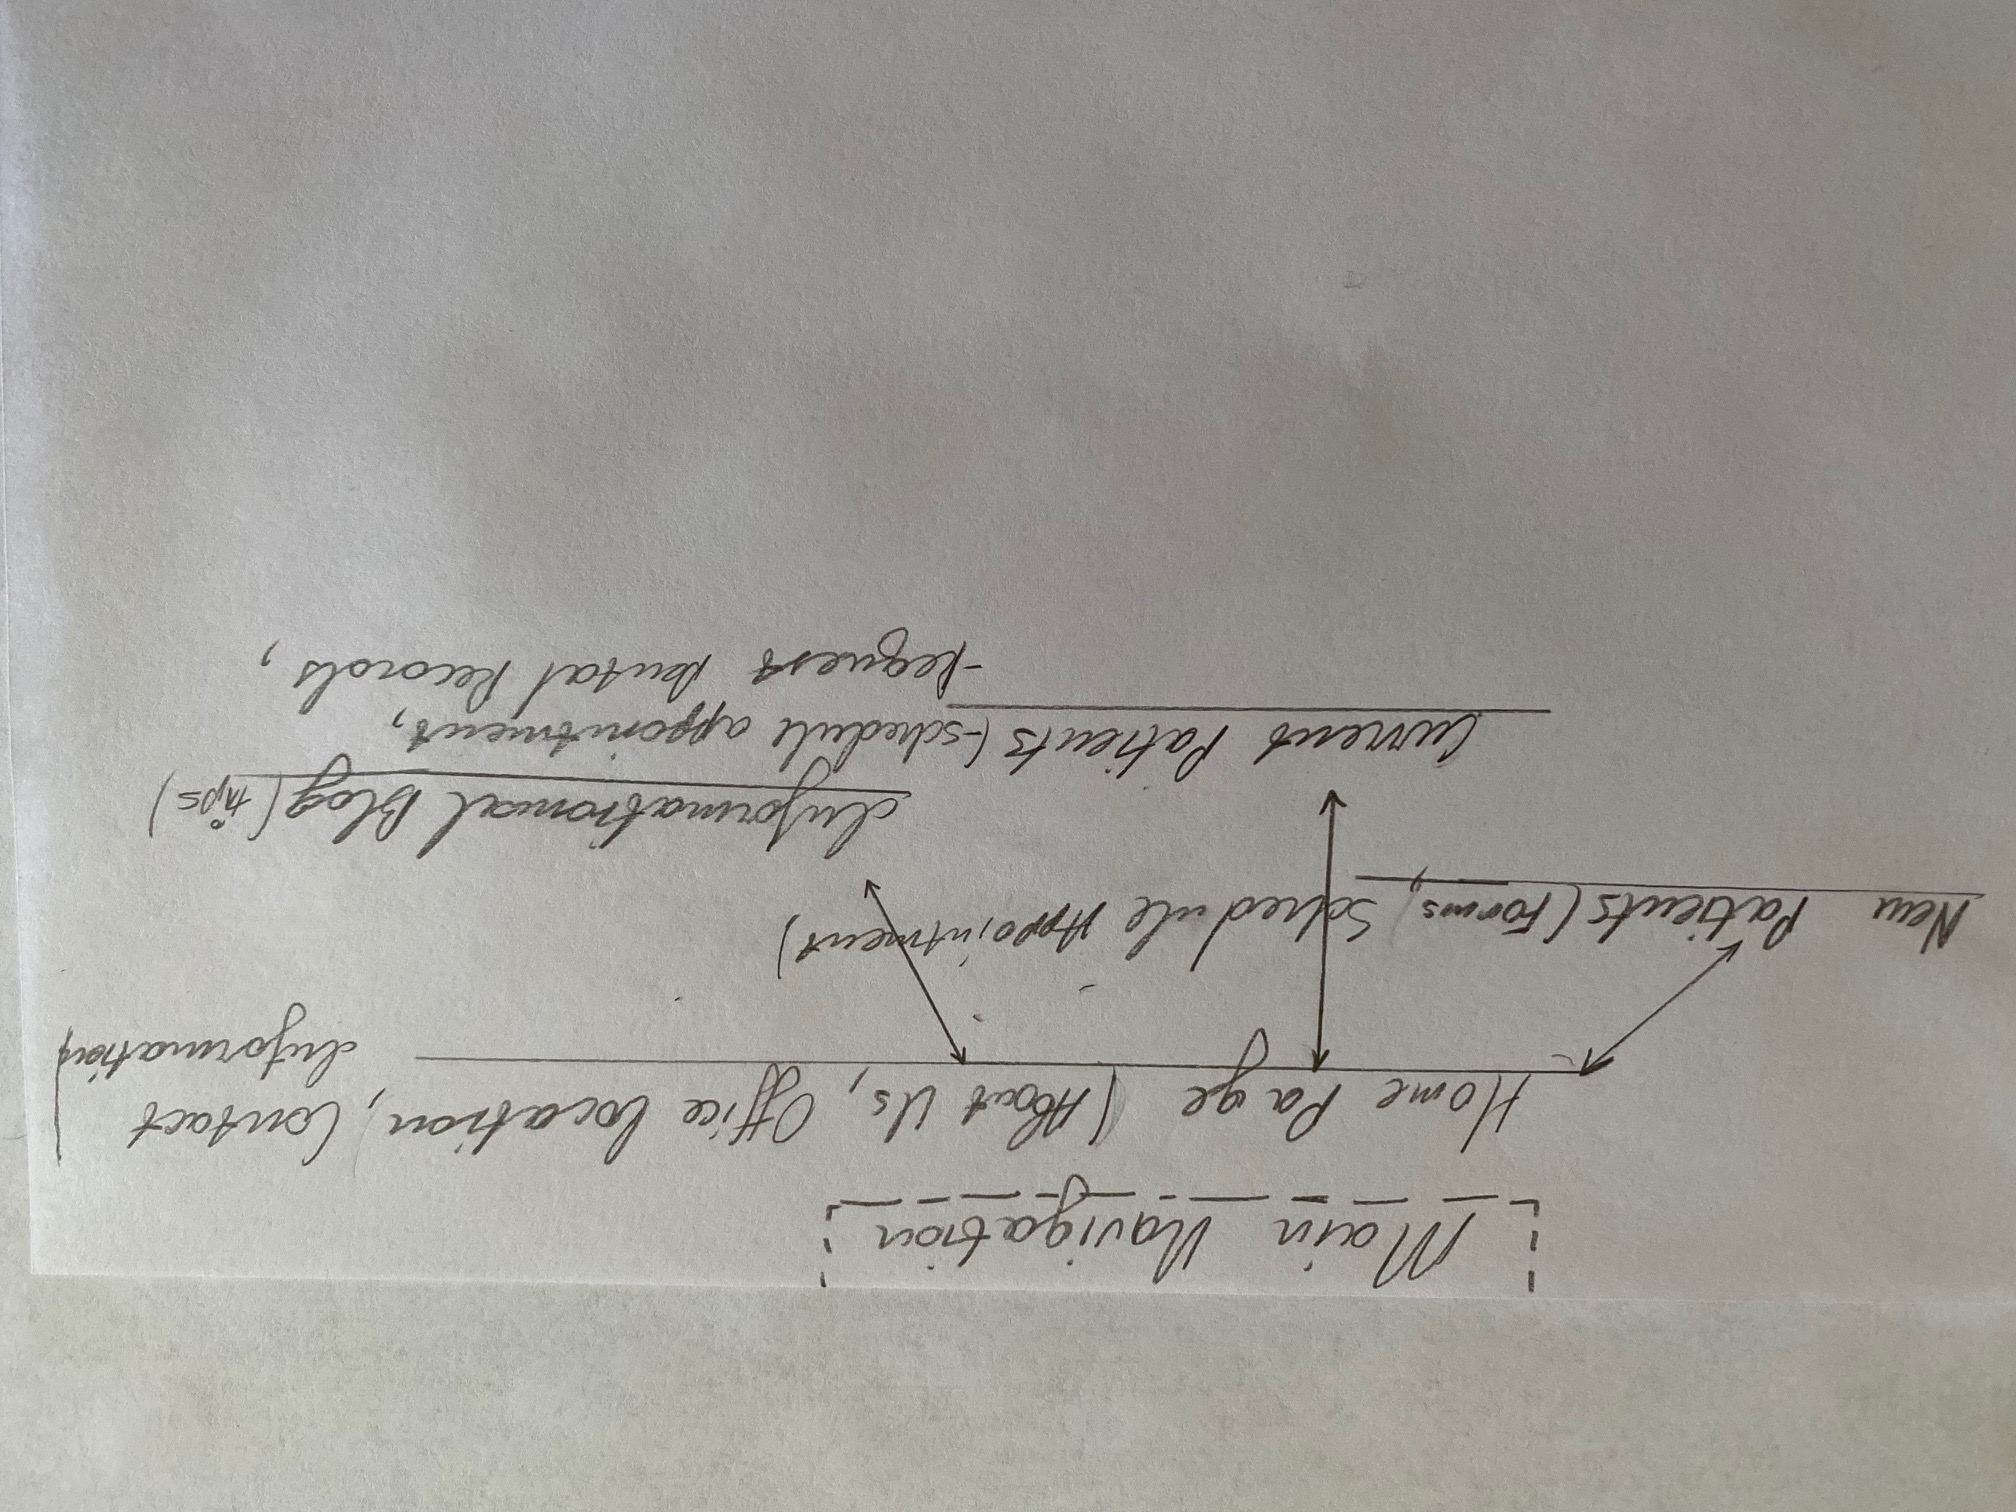 Main Navigation
Home Page (About Us, Office location, Contact
Information)
New Patients (Forms, Schedule Appointment)
Informational Blog (tips)
Current Patients (-schedule appointment,
-Request Dental Records,